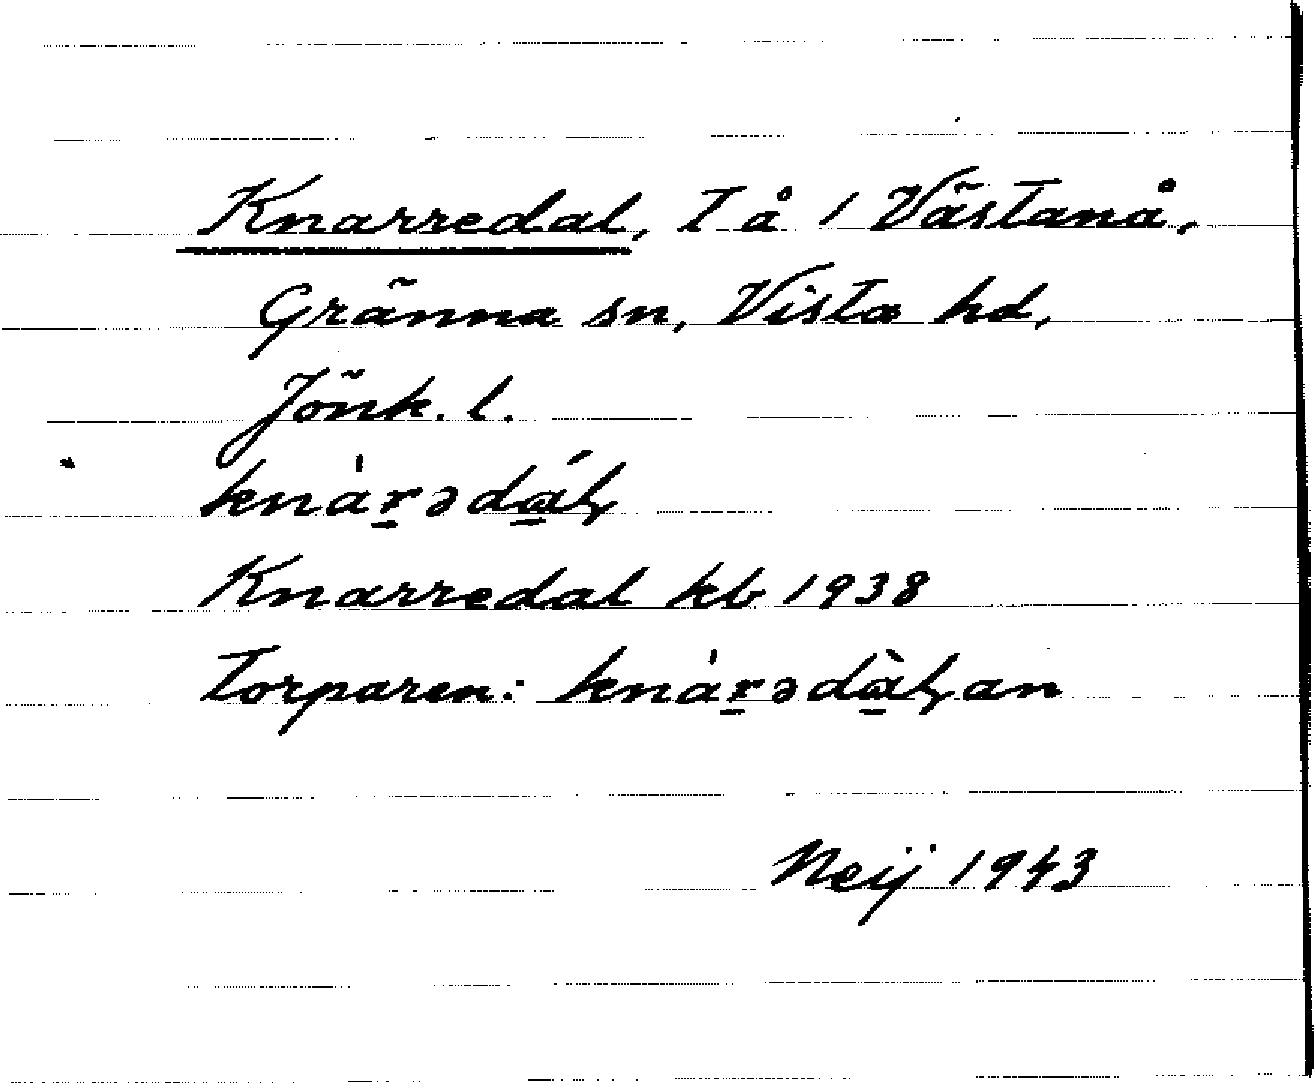 Knarredal, T å 1 Västanå,
Gränna sn, Vista hd,
Jönk. l.
Knarredal kb 1938
Torparen:
Neij 1943